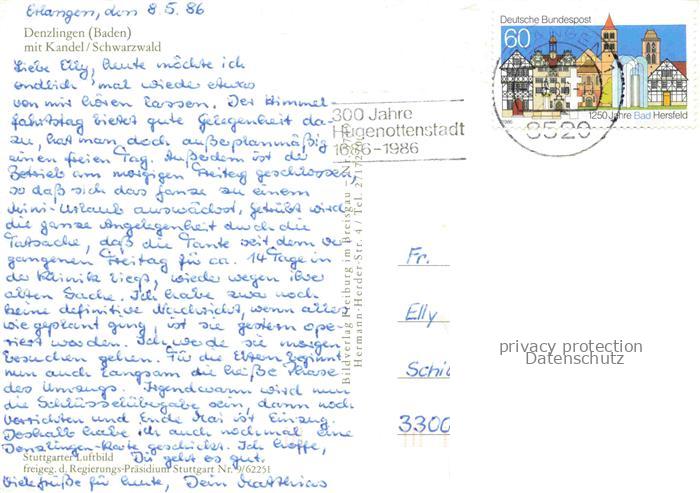 Erlangen, den 8.5.86
Denzlingen (Baden)
mit Kandel/Schwarzwald
Liebe Elly, heute möchte ich
endlich 'mal wieder etwas
von mir hören lassen. Der Himmel-
fahrtstag bietet gute Gelegenheit da-
zu, hat man doch außerplanmäßig
einen freien Tag. Außerdem ist der
Betrieb am morgigen Freitag geschlossen,
so daß sich das ganze zu einem
Mini-Urlaub auswächst, getrübt wird
die ganze Angelegenheit durch die
Tatsache, daß die Tante seit dem ver-
gangenen Freitag für ca. 14 Tage in
der Klinik liegt, wieder wegen ihrer
alten Sache. Ich habe zwar noch
keine definitive Nachricht, wenn alles
wie geplant ging, ist sie gestern ope-
riert worden. Ich werde sie morgen
besuchen gehen. Für die Eltern beginnt
nun auch langsam die heiße Phase
des Umzugs. Irgendwann wird nun
die Schlüsselübergabe sein, dann noch
vorrichten und Ende Mai ist Einzug.
Deshalb habe ich auch nochmal eine
Denzlingen-Karte geschickt. Ich hoffe,
Dir geht es gut.
Viele Grüße für heute, Dein Matthias
Stuttgarter Luftbild
freigeg. d. Regierungs-Präsidium Stuttgart Nr. 9/62251
Bildverlag Freiburg im Breisgau
Hermann-Herder-Str. 4 / Tel.
300 Jahre
Hugenottenstadt
1686-1986
Deutsche Bundespost
60
1250 Jahre Bad Hersfeld
1986
8520
Fr.
Elly
3300
privacy protection
Datenschutz